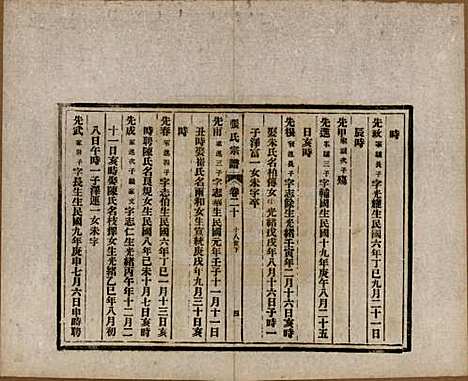 時
先敏家猷長子字光耀生民國六年丁巳九月二十一日
辰時
先甲家猷次子殤
先進家猷三子字輔國生民國十九年庚午八月二十五
日亥時
先揚長子字志餘生光緒壬寅年二月十六日亥時
娶朱氏名柏傳女光緒戊戌年八月十六日子時一
子澤富一女朱字卒
張氏宗譜 卷二十 十八世下 四
先南家進三子字志生民國元年壬子十一月十一日
丑時娶崔氏名和女生宣統庚戌年三月三十日亥
時
先春長子字志伯生民國六年丁巳一月十三日亥
時聘陳氏名良規女生民國八年己未十月七日亥時
先成家進次子字志仁生光緒丙午年十二月二
十一日亥時娶陳氏名枝擇女生光緒乙巳年八月初
八日午時一子澤運一女未字
先武子字長生生民國九年庚申七月六日申時聘